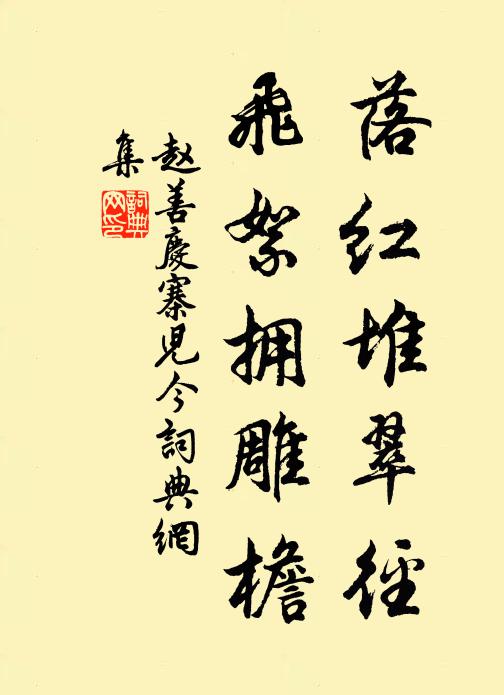 落红堆翠径
飛絮拥雕檐
赵善慶寨児令詞典網
集
詞典
网印